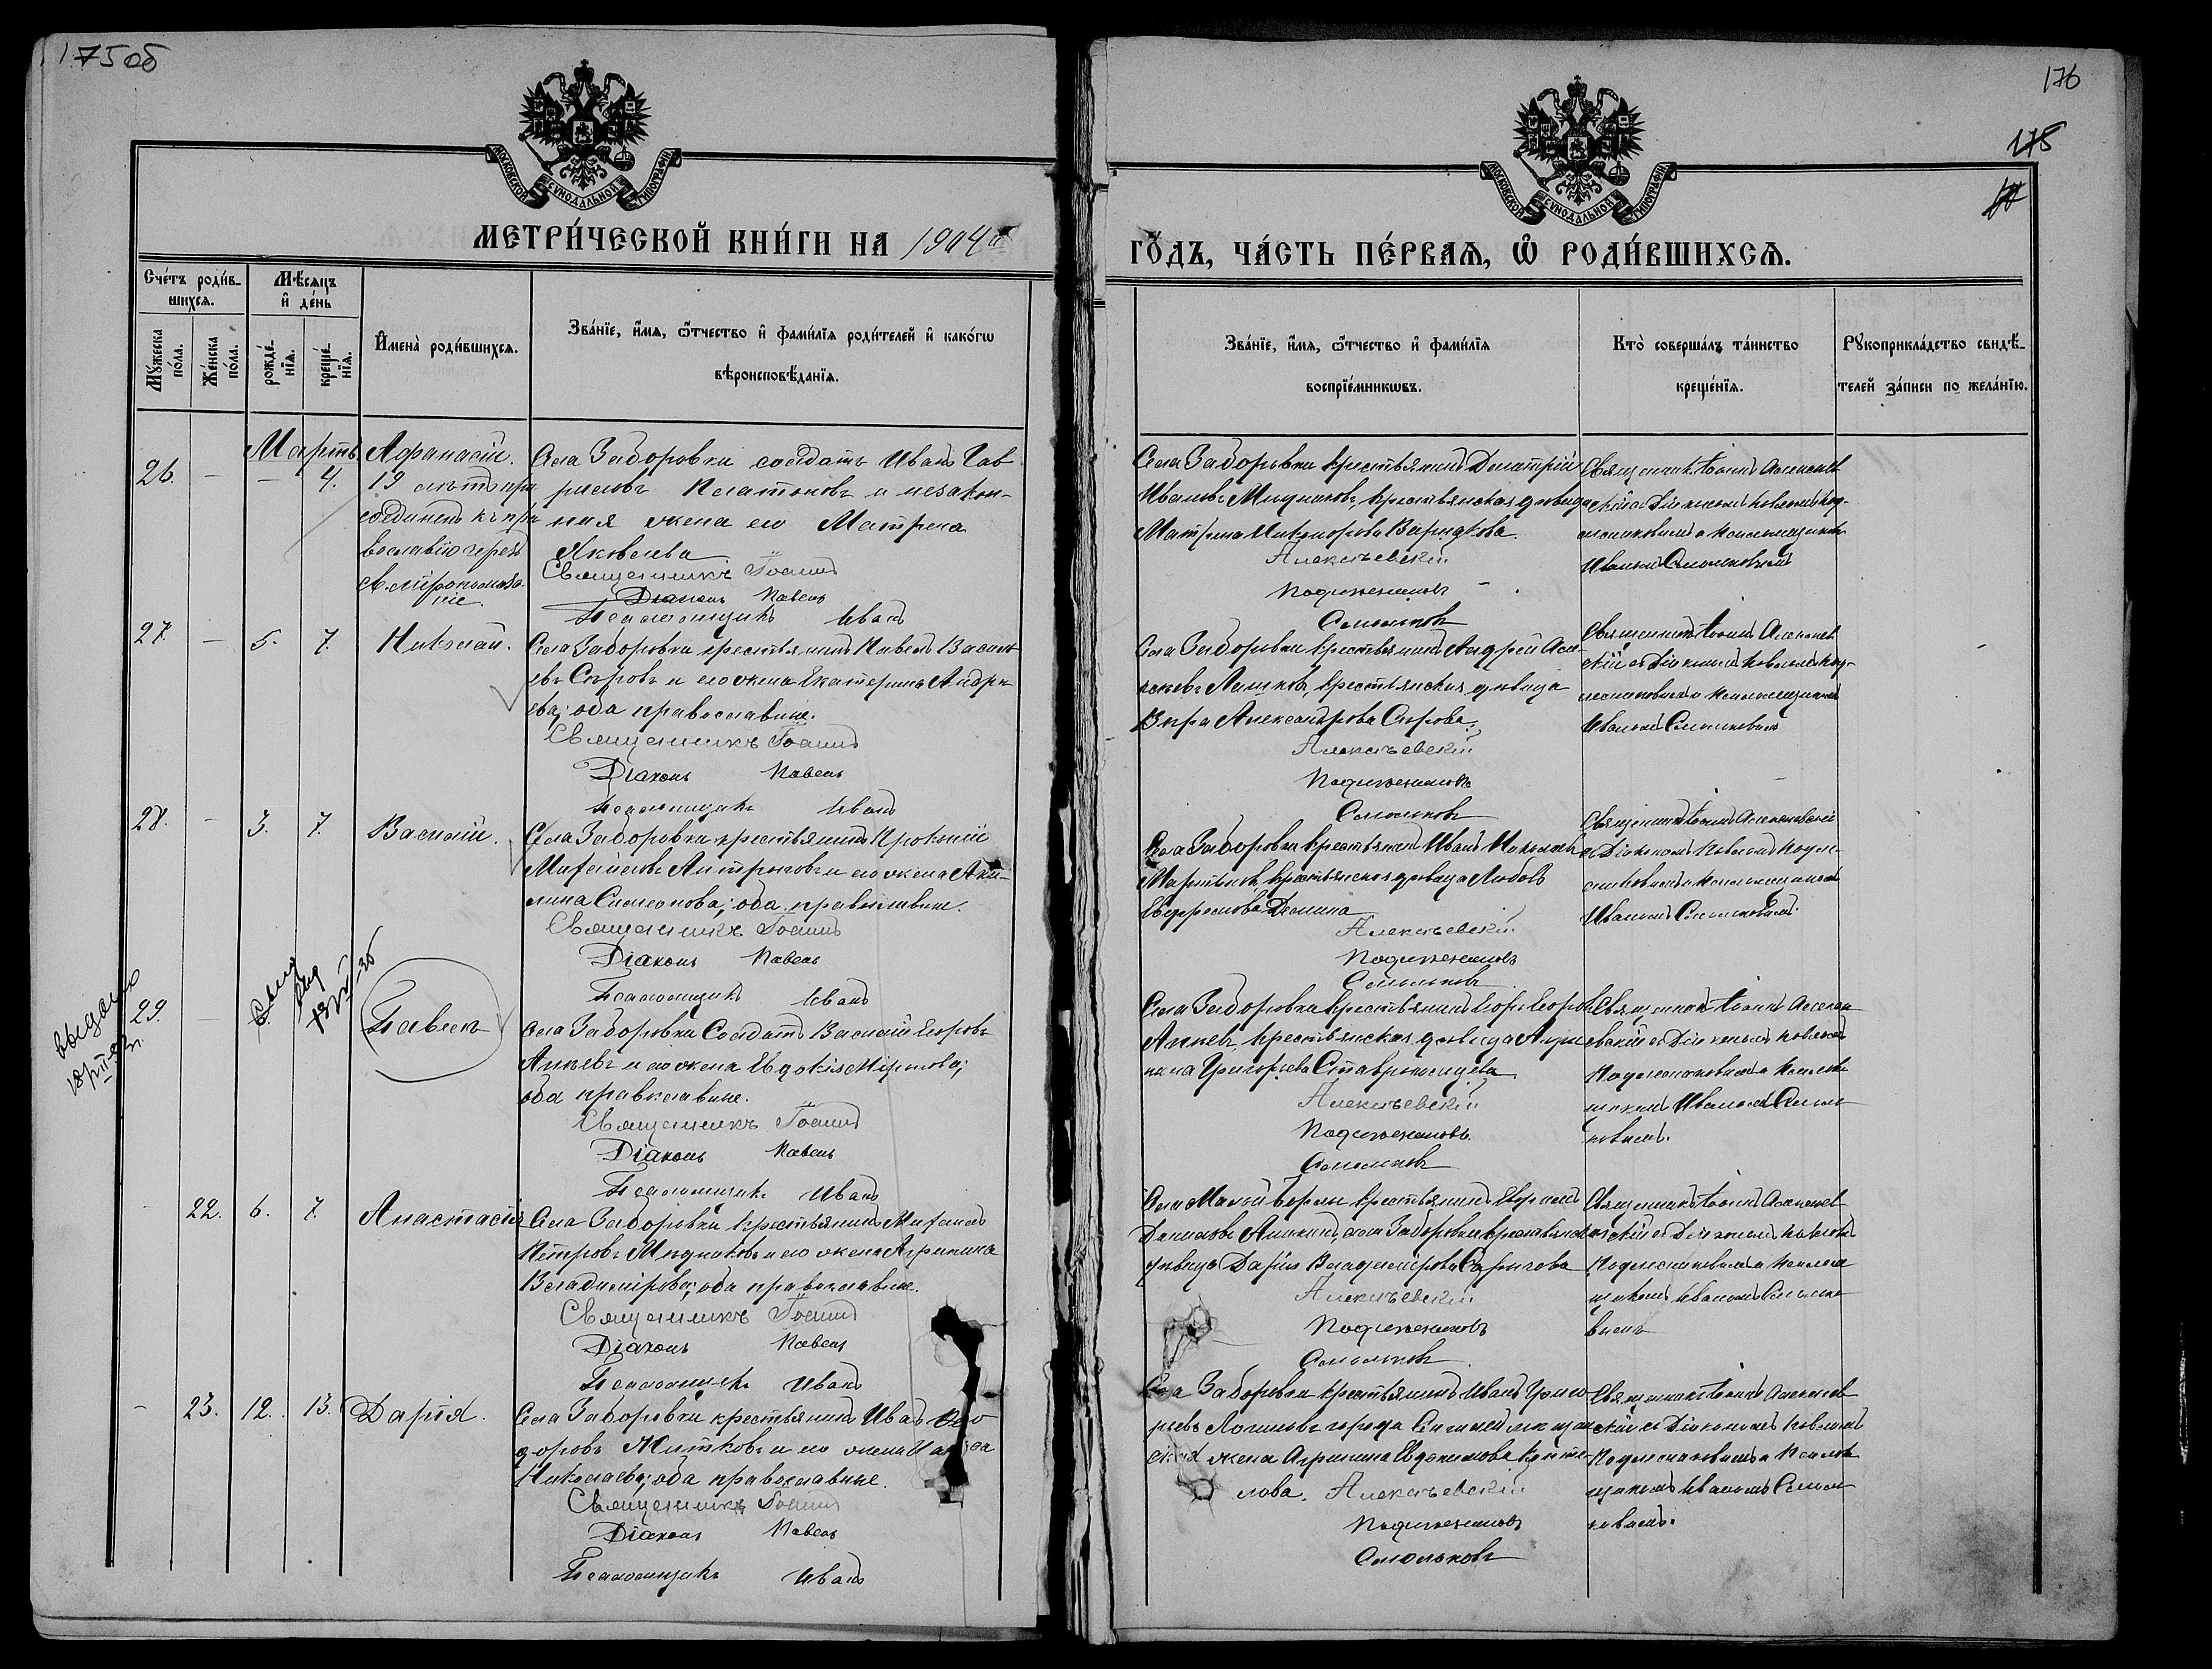 175об
МОСКОВСКОЙ СѴНОДАЛЬНОЙ ТИПОГРАФІИ
МЕТРИ́ЧЕСКОЙ КНИ́ГИ НА 1904й
Сче́тъ роди́в-
шихсѧ.
Мѣ́сѧцъ
и҆ де́нь
Мꙋ́жеска
по́ла.
Же́нска
по́ла.
рожде́-
нїѧ.
креще́-
нїѧ.
И҆мена̀ роди́вшихсѧ.
Зва́нїе, и҆́мѧ, ѻ҆́тчество и҆ фами́лїѧ роди́телей и҆ како́гѡ
вѣроисповѣ́данїѧ.
Мартъ
26. - - 4.
Афанасій.
19 лѣтъ при
соединенъ къ пра
вославію чрезъ
св. мѵропомаза-
ніе
Села Заборовки солдатъ Иванъ Гав
риловъ Платоновъ и незакон-
ная жена его Матрена
Яковлева
Священникъ Іоаннъ
Діаконъ Павелъ
Псаломщикъ Иванъ
27. - 5. 7. Николай.
Села Заборовки крестьянинъ Павелъ Василь
евъ Сѣровъ и его жена Екатерина Андре
ева; оба православные.
Священникъ Іоаннъ
Діаконъ Павелъ
Псаломщикъ Иванъ
28. - 3. 7. Василій.
Села Заборовки крестьянинъ Прокопій
Михайловъ и его жена Аку-
лина Симеонова; оба православные.
Священникъ Іоаннъ
Діаконъ Павелъ
Псаломщикъ Иванъ
выдано
29. - Павелъ
Села Заборовки Солдатъ Василій Егоровъ
Анневъ и его жена Евдокія Миронова;
оба православные.
Священникъ Іоаннъ
Діаконъ Павелъ
Псаломщикъ Иванъ
- 22. 6. 7. Анастасія
Села Заборовки крестьянинъ Михаилъ
Петровъ Мѣдниковъ и его жена Агрипина
Владимірова; оба православные.
Священникъ Іоаннъ
Діаконъ Павелъ
Псаломщикъ Иванъ
- 23. 12. 13. Дарія.
Села Заборовки крестьянинъ Иванъ
доровъ Житковъ и его жена
Николаева; оба православные.
Священникъ Іоаннъ
Діаконъ Павелъ
Псаломщикъ Иванъ
176
175
МОСКОВСКОЙ СѴНОДАЛЬНОЙ ТИПОГРАФІИ
ГО́ДЪ, ЧА́СТЬ ПЕ́РВАѦ, Ѽ РОДИ́ВШИХСѦ.
Зва́нїе, и҆́мѧ, ѻ҆́тчество и҆ фами́лїѧ
воспрїе́мникѡвъ.
Кто̀ соверша́лъ та́инство
креще́нїѧ.
Рꙋкоприкла́дство свидѣ́-
телей за́писи по жела́нїю.
Села Заборовки крестьянинъ Димитрій
Ивановъ Мѣдниковъ, крестьянская дѣвица
Матрона Никанорова
Алексѣевскій
Подлѣсниковъ
Смольковъ
Священникъ Іоаннъ Алексѣев
скій съ Діакономъ Павломъ Под-
лѣсниковымъ и псаломщикомъ
Иваномъ Смольковымъ
Села Заборовки крестьянинъ Андрей Але-
ксѣевъ крестьянская дѣвица
Вѣра Александрова Сѣрова.
Алексѣевскій
Подлѣсниковъ
Смольковъ
Священникъ Іоаннъ Алексѣев
скій съ Діакономъ Павломъ Под-
лѣсниковымъ и псаломщикомъ
Иваномъ Смольковымъ
Села Заборовки крестьянинъ Иванъ
крестьянская дѣвица Любовь
Демина
Алексѣевскій
Подлѣсниковъ
Смольковъ
Священникъ Іоаннъ Алексѣевскій
съ Діакономъ Павломъ Подлѣ-
сниковымъ и псаломщикомъ
Иваномъ Смольковымъ.
Села Заборовки крестьянинъ Егоръ Егоровъ
Анневъ, крестьянская дѣвица Агри
пина Григорьева
Алексѣевскій
Подлѣсниковъ
Смольковъ
Священникъ Іоаннъ Алексѣ
евскій съ Діакономъ Павломъ
Подлѣсниковымъ и псалом
щикомъ Иваномъ Смоль
ковымъ.
Села крестьянинъ
Даниловъ села Заборовки крестьянская
дѣвица Дарія Владимірова
Алексѣевскій
Подлѣсниковъ
Смольковъ
Священникъ Іоаннъ Алексѣев
скій съ Діакономъ Павломъ
Подлѣсниковымъ и псалом
щикомъ Иваномъ Смолько
вымъ
Села Заборовки крестьянинъ Иванъ Григо
рьевъ Логиновъ города мѣщан
ская жена Агрипина Евдокимова
лова. Алексѣевскій
Подлѣсниковъ
Смольковъ
Священникъ Іоаннъ Алексѣев
скій съ Діакономъ Павломъ
Подлѣсниковымъ и псалом
щикомъ Иваномъ Смоль
ковымъ.